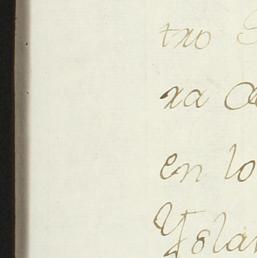 tro
ra
en lo
Yslan